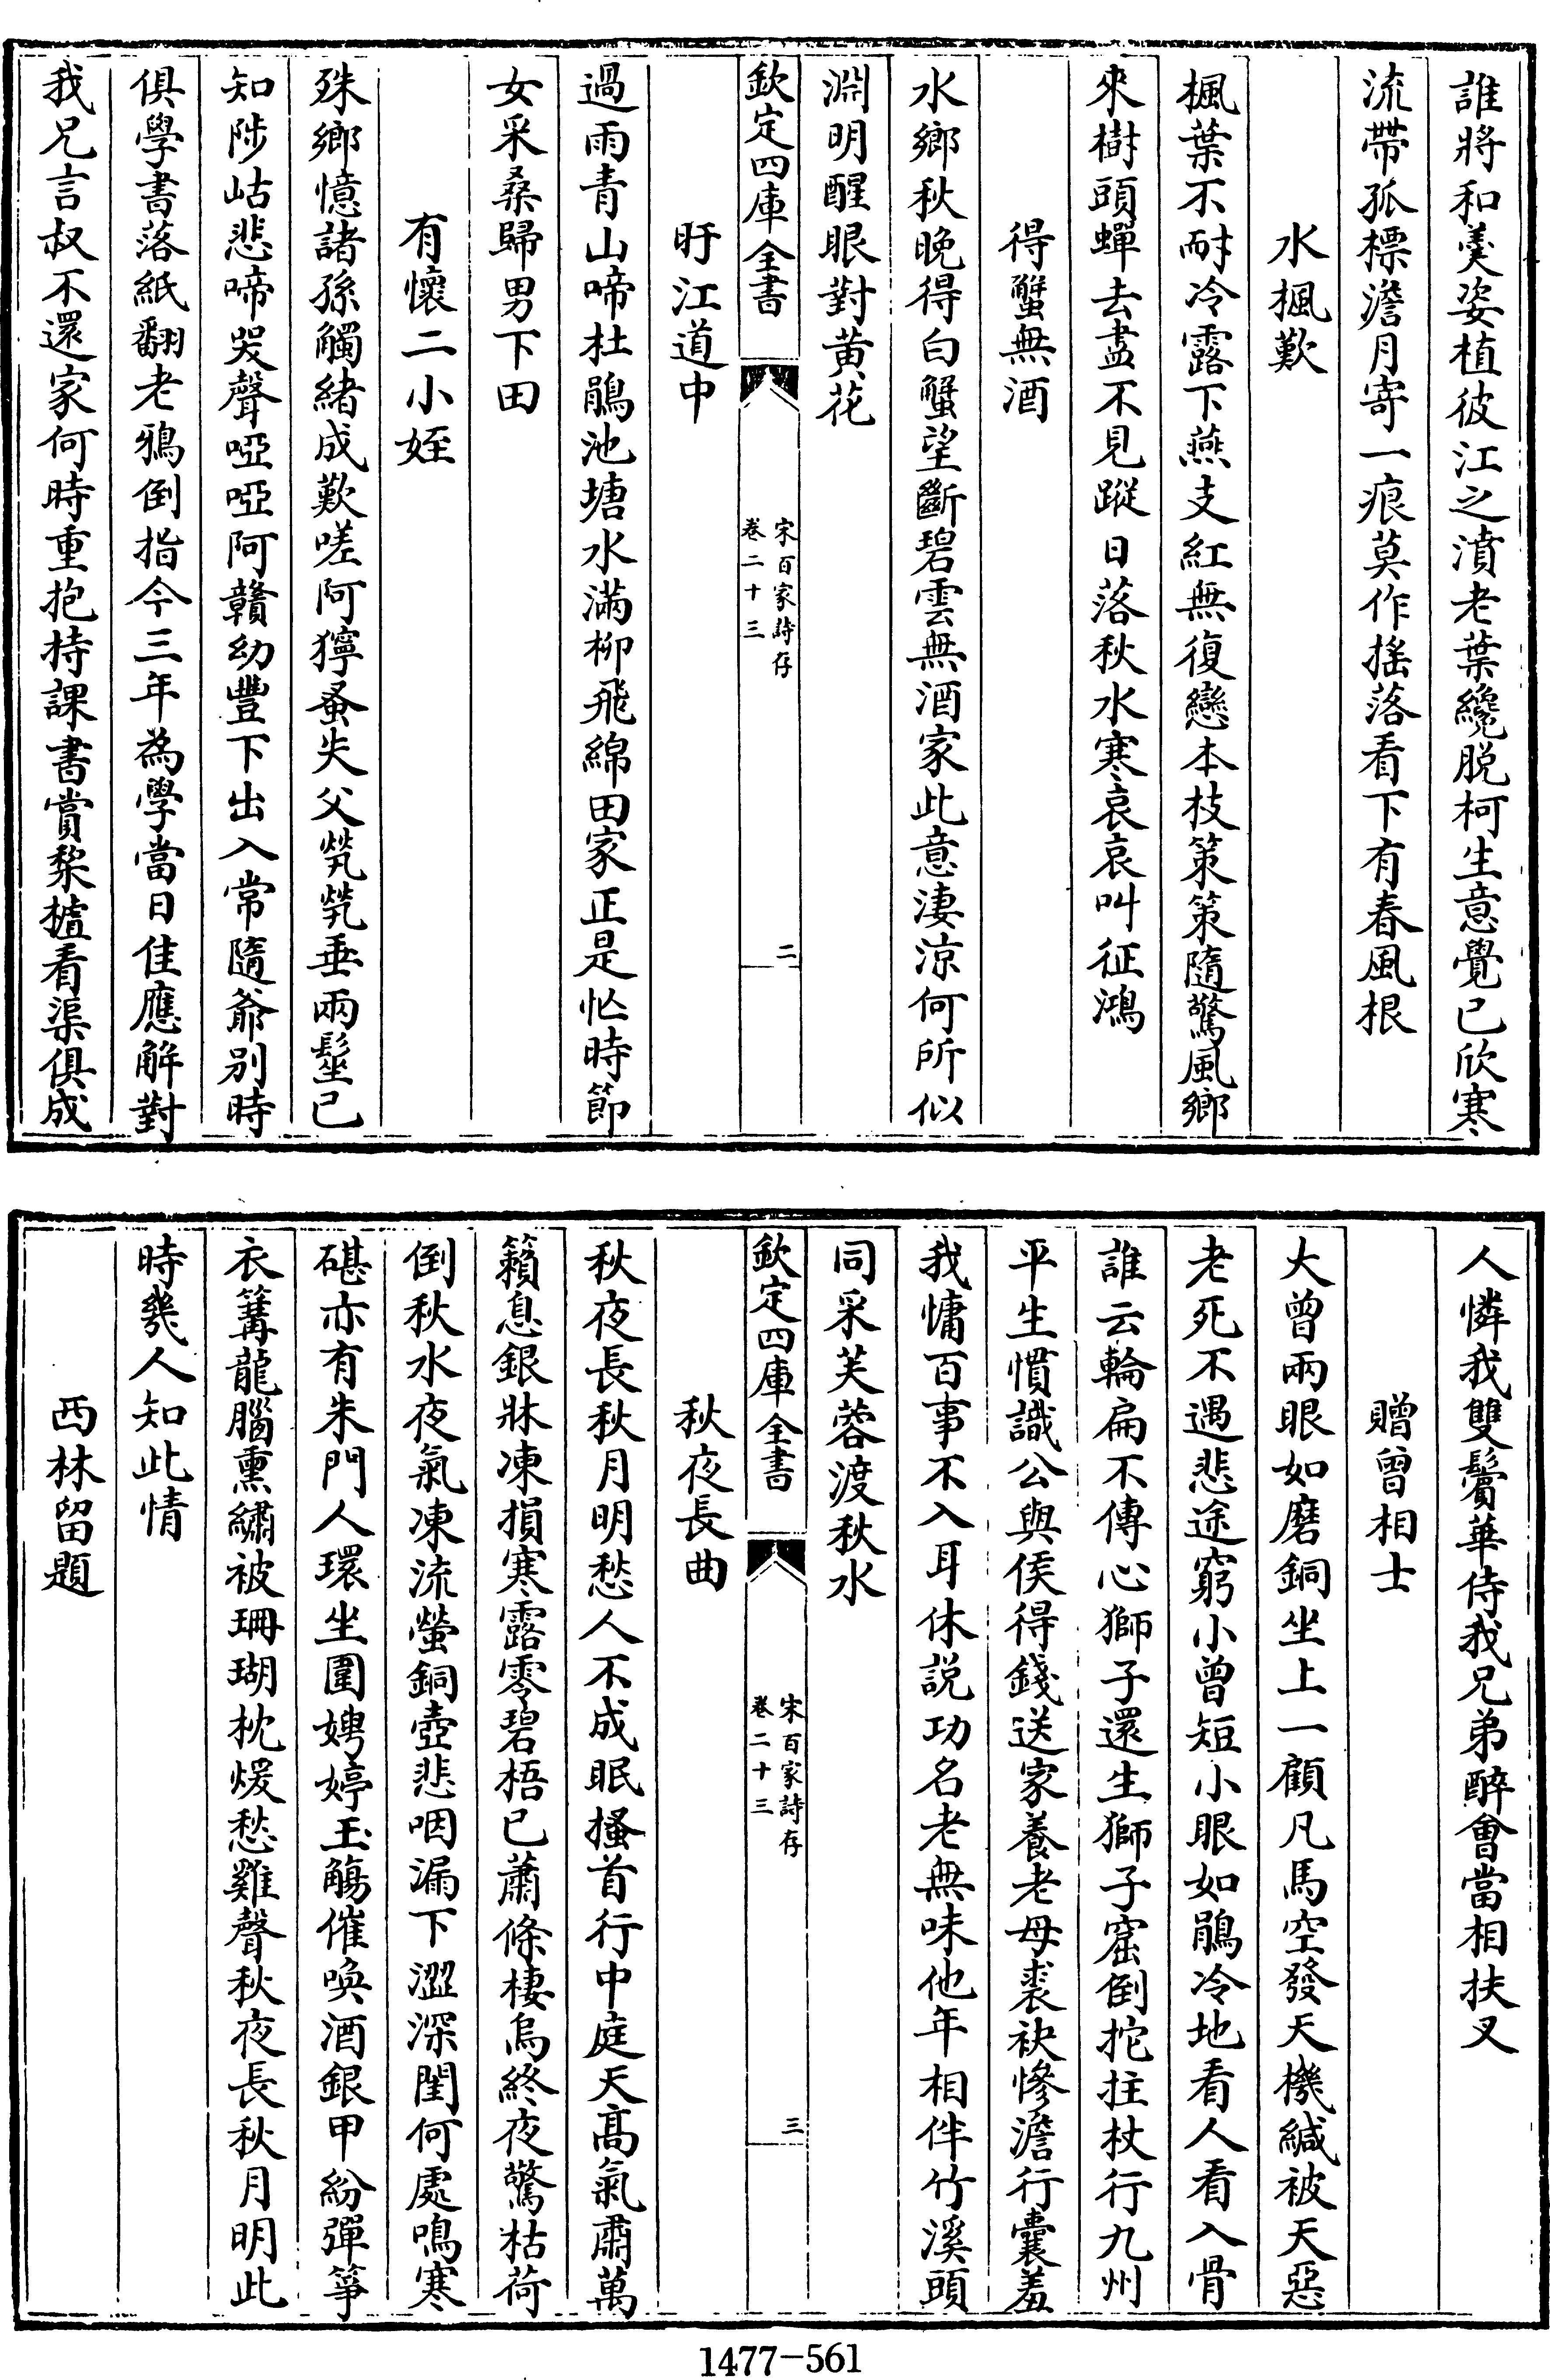 誰將和羹姿植彼江之濆老葉纔脱柯生意覺已欣寒
流帶孤標澹月寄一痕莫作搖落看下有春風根
水楓歎
楓葉不耐冷露下燕支紅無復戀本枝策策隨驚風鄉
來樹頭蟬去盡不見蹤日落秋水寒哀哀叫征鴻
得蟹無酒
水鄉秋晩得白蟹望斷碧雲無酒家此意淒涼何所似
淵明醒眼對黄花
欽定四庫全書
宋百家詩存
卷二十三
二
盱江道中
過雨青山啼杜鵑池塘水滿柳飛綿田家正是忙時節
女采桑歸男下田
有懷二小姪
殊鄉憶諸孫觸緒成歎嗟阿獰蚤失父煢煢垂兩髽已
知陟岵悲啼哭聲啞啞阿贛幼豐下出入常隨爺别時
俱學書落紙翻老鴉倒指今三年為學當日佳應解對
我兄言叔不還家何時重抱持課書賞棃樝看渠俱成
人憐我雙鬢華侍我兄弟醉會當相扶叉
贈曾相士
大曾兩眼如磨銅坐上一顧凡馬空發天機緘被天惡
老死不遇悲途窮小曾短小眼如鶻冷地看人看入骨
誰云輪扁不傳心獅子還生獅子窟倒拕拄杖行九州
平生慣識公與侯得錢送家養老母裘袂慘澹行囊羞
我慵百事不入耳休説功名老無味他年相伴竹溪頭
同采芙蓉渡秋水
欽定四庫全書
宋百家詩存
卷二十三
三
秋夜長曲
秋夜長秋月明愁人不成眠搔首行中庭天髙氣肅萬
籟息銀牀凍損寒露零碧梧已蕭條棲烏終夜驚枯荷
倒秋水夜氣凍流螢銅壺悲咽漏下澀深閨何處鳴寒
碪亦有朱門人環坐圍娉婷玉觴催喚酒銀甲紛彈箏
衣篝龍腦熏繡被珊瑚枕煖愁雞聲秋夜長秋月明此
時幾人知此情
西林留題
1477-561